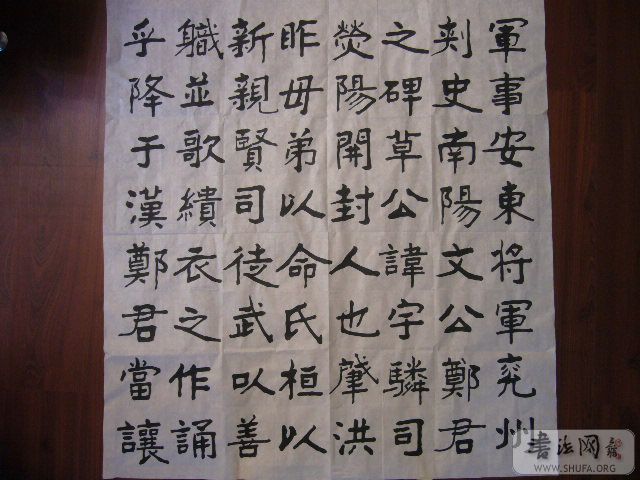 軍事安東将軍兗州
刾史南陽文公鄭君
之碑草公諱字驎司
熒陽開封人也肇洪
昨毋弟以命氏桓以
新親賢司徒武以善
軄並歌繢衣之作誦
乎降于漢鄭君當讓
书法网
WWW.SHUFA.ORG